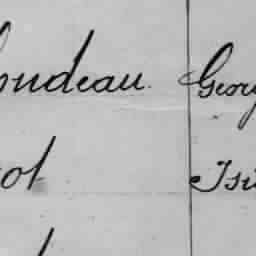 oudeau Geor
ot Isi